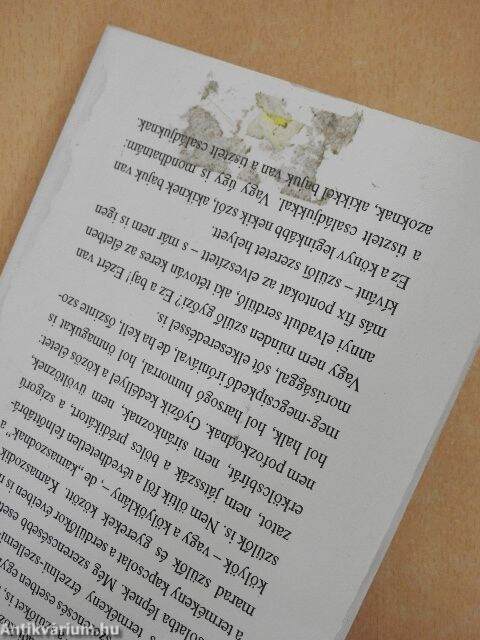 a termékeny érzelmi-szellemi
a termékeny kapcsolat a serdülőkor éveiben is
marad szülők és gyerekek között. Kamaszodik
kölyök – vagy a kölyöklány –, de „kamaszodnak” a
szülők is. Nem öltik föl a tévedhetetlen felnőttábrá-
zatot, nem játsszák a bölcs prédikátort, a szigorú
erkölcsbírát, nem siránkoznak, nem üvöltöznek,
nem pofozkodnak. Győzik kedéllyel a közös életet:
hol halk, hol harsogó humorral, hol önmagukat is
meg-megcsipkedő iróniával, de ha kell, őszinte szo-
morúsággal, sőt elkeseredéssel is.
Vagy nem minden szülő győzi? Ez a baj! Ezért van
annyi elvadult serdülő, aki tétován keres az életben
más fix pontokat az elveszített – s már nem is igen
kívánt – szülői szeretet helyett.
Ez a könyv leginkább nekik szól, akiknek bajuk van
a tisztelt családjukkal. Vagy úgy is mondhatnám:
azoknak, akikkel bajuk van a tisztelt családjuknak.
Antikvárium.hu